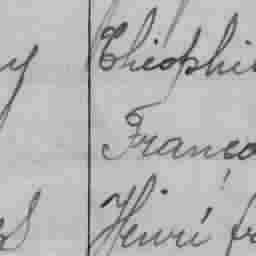 y Théophi
Franço
Henri fr